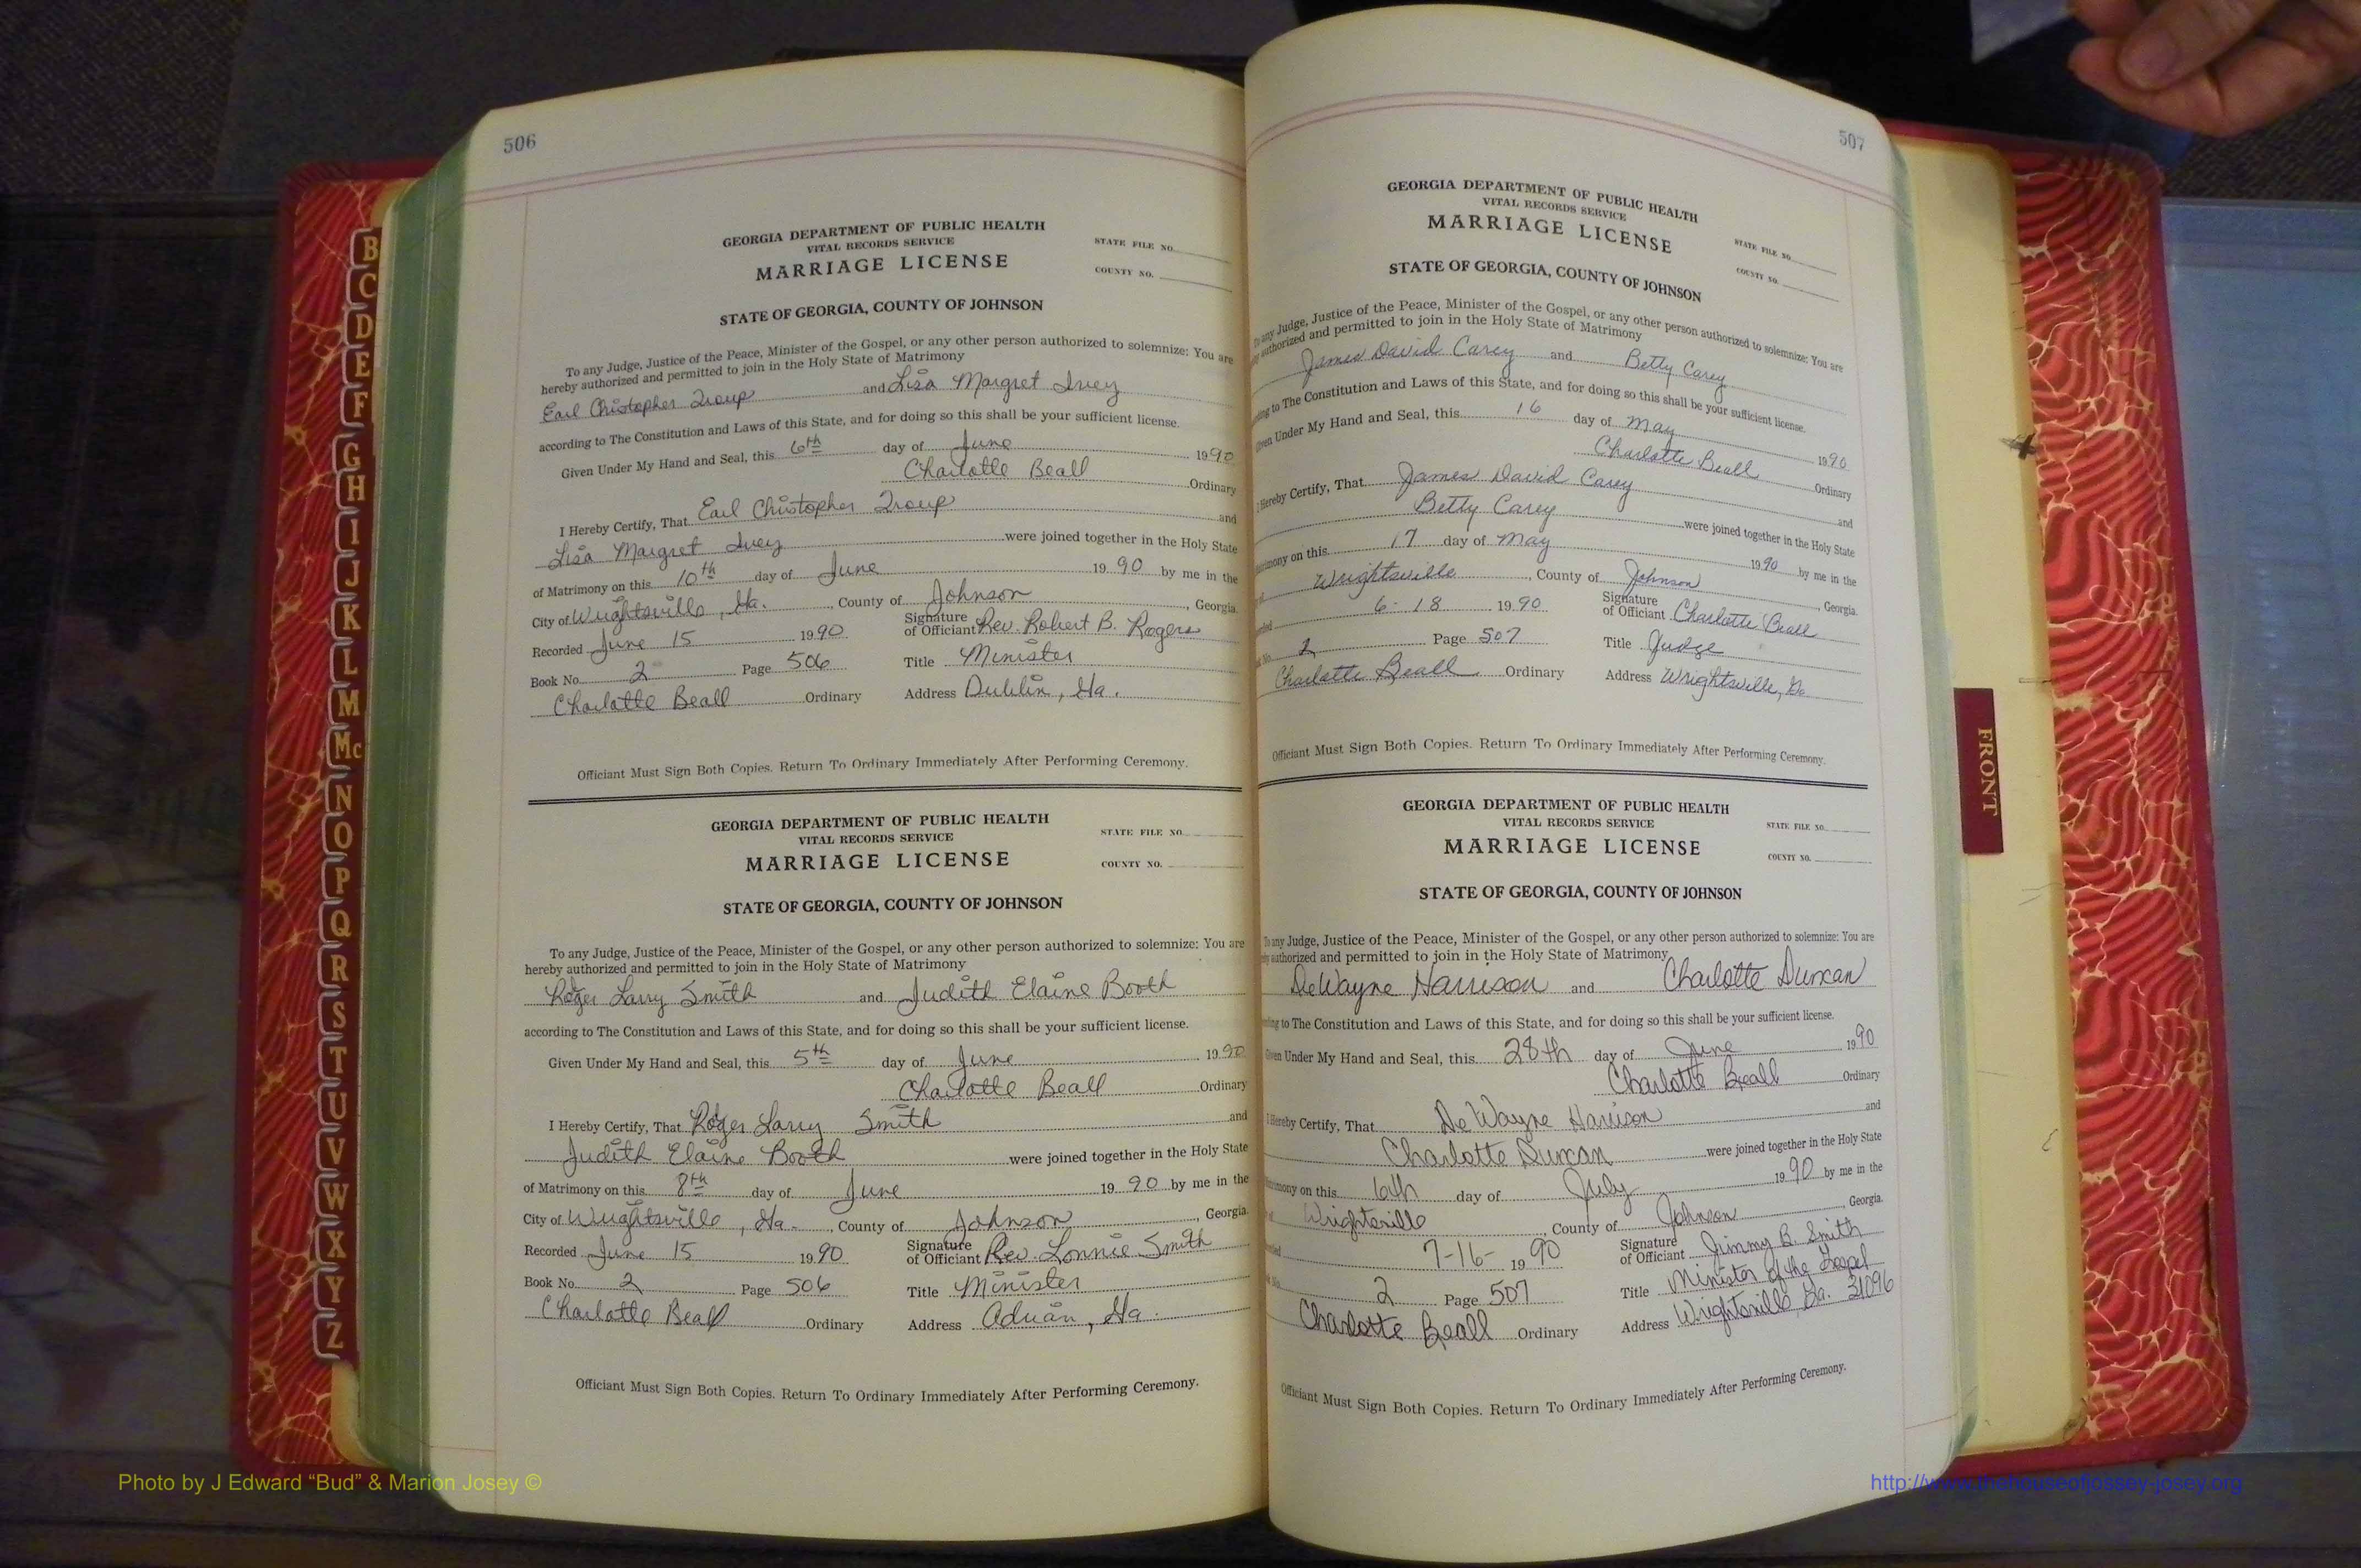 506
GEORGIA DEPARTMENT OF PUBLIC HEALTH
VITAL RECORDS SERVICE
MARRIAGE LICENSE
STATE FILE NO.
COUNTY NO.
STATE OF GEORGIA, COUNTY OF JOHNSON
To any Judge, Justice of the Peace, Minister of the Gospel, or any other person authorized to solemnize: You are
hereby authorized and permitted to join in the Holy State of Matrimony
Earl Chistopher Troup and Lisa Margret Ivey
according to The Constitution and Laws of this State, and for doing so this shall be your sufficient license.
Given Under My Hand and Seal, this 6th day of June 1990
Charlotte Beall Ordinary
I Hereby Certify, That Earl Christopher Troup and
Lisa Margret Ivey were joined together in the Holy State
of Matrimony on this 10th day of June 1990 by me in the
City of Wrightsville, Ga., County of Johnson, Georgia.
Recorded June 15 1990 Signature of Officiant Rev. Robert B. Rogers
Book No. 2 Page 506 Title Minister
Charlotte Beall Ordinary Address Dublin, Ga.
Officiant Must Sign Both Copies. Return To Ordinary Immediately After Performing Ceremony.
GEORGIA DEPARTMENT OF PUBLIC HEALTH
VITAL RECORDS SERVICE
MARRIAGE LICENSE
STATE FILE NO.
COUNTY NO.
STATE OF GEORGIA, COUNTY OF JOHNSON
To any Judge, Justice of the Peace, Minister of the Gospel, or any other person authorized to solemnize: You are
hereby authorized and permitted to join in the Holy State of Matrimony
Roger Larry Smith and Judith Elaine Booth
according to The Constitution and Laws of this State, and for doing so this shall be your sufficient license.
Given Under My Hand and Seal, this 5th day of June 1990
Charlotte Beall Ordinary
I Hereby Certify, That Roger Larry Smith and
Judith Elaine Booth were joined together in the Holy State
of Matrimony on this 8th day of June 1990 by me in the
City of Wrightsville, Ga., County of Johnson, Georgia.
Recorded June 15 1990 Signature of Officiant Rev. Lonnie Smith
Book No. 2 Page 506 Title Minister
Charlotte Beall Ordinary Address Adrian, Ga.
Officiant Must Sign Both Copies. Return To Ordinary Immediately After Performing Ceremony.
507
GEORGIA DEPARTMENT OF PUBLIC HEALTH
VITAL RECORDS SERVICE
MARRIAGE LICENSE
STATE FILE NO.
COUNTY NO.
STATE OF GEORGIA, COUNTY OF JOHNSON
To any Judge, Justice of the Peace, Minister of the Gospel, or any other person authorized to solemnize: You are
authorized and permitted to join in the Holy State of Matrimony
James David Carey and Betty Carey
to The Constitution and Laws of this State, and for doing so this shall be your sufficient license.
Given Under My Hand and Seal, this 16 day of May 1990
Charlotte Beall Ordinary
I Hereby Certify, That James David Carey and
Betty Carey were joined together in the Holy State
on this 17 day of May 1990 by me in the
Wrightsville, County of Johnson, Georgia.
6-18 1990 Signature of Officiant Charlotte Beall
2 Page 507 Title Judge
Charlotte Beall Ordinary Address Wrightsville, Ga
Officiant Must Sign Both Copies. Return To Ordinary Immediately After Performing Ceremony.
GEORGIA DEPARTMENT OF PUBLIC HEALTH
VITAL RECORDS SERVICE
MARRIAGE LICENSE
STATE FILE NO.
COUNTY NO.
STATE OF GEORGIA, COUNTY OF JOHNSON
To any Judge, Justice of the Peace, Minister of the Gospel, or any other person authorized to solemnize: You are
authorized and permitted to join in the Holy State of Matrimony
DeWayne Harrison and Charlotte Duncan
to The Constitution and Laws of this State, and for doing so this shall be your sufficient license.
Given Under My Hand and Seal, this 28th day of June 1990
Charlotte Beall Ordinary
I Hereby Certify, That DeWayne Harrison and
Charlotte Duncan were joined together in the Holy State
on this 6th day of July 1990 by me in the
Wrightsville, County of Johnson, Georgia.
7-16- 1990 Signature of Officiant Jimmy B. Smith
2 Page 507 Title Minister of the Gospel
Charlotte Beall Ordinary Address Wrightsville, Ga. 31096
Officiant Must Sign Both Copies. Return To Ordinary Immediately After Performing Ceremony.
B
C
D
E
F
G
H
I
J
K
L
M
Mc
N
O
P
Q
R
S
T
U
V
W
X
Y
Z
FRONT
Photo by J Edward “Bud” & Marion Josey ©
http://www.thehouseofjossey-josey.org